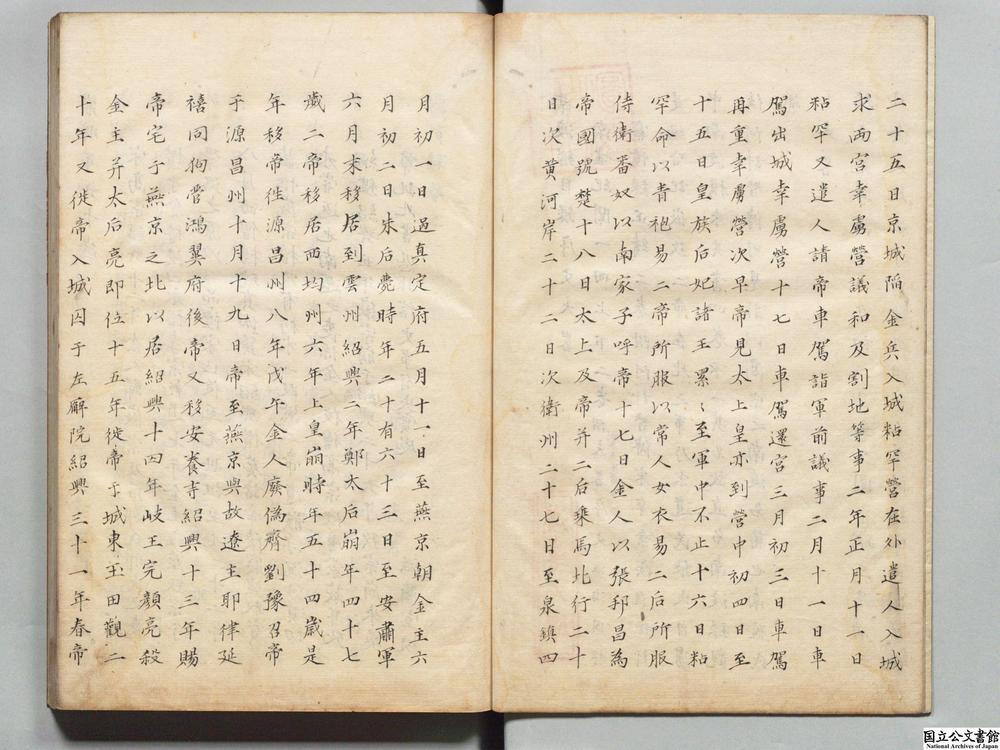 二十五日京城陥金兵入城粘罕營在外遣人入城
求兩宮幸虜營議和及割地等事二年正月十一日
粘罕又遣人請帝車駕詣軍前議事二月十一日車
駕出城幸虜營十七日車駕還宮三月初三日車駕
再重幸虜營次早帝見太上皇亦到營中初四日至
十五日皇族后妃諸王累〻至軍中不止十六日粘
罕命以青袍易二帝所服以常人女衣易二后所服
侍衛番奴以南家子呼帝十七日金人以張邦昌為
帝國號楚十八日太上及帝并二后乘馬北行二十
日次黄河岸二十二日次衛州二十七日至泉鎮四
月初一日過真定府五月十一日至燕京朝金主六
月初二日朱后薨時年二十有六十三日至安肅軍
六月末移居到雲州紹興二年鄭太后崩年四十七
歲二帝移居西均州六年上皇崩時年五十四歲是
年移帝徃源昌州八年戊午金人廢偽齊劉豫召帝
于源昌州十月十九日帝至燕京與故遼主耶律延
禧同拘管鴻翼府後帝又移安養寺紹興十三年賜
帝宅于燕京之北以居紹興十四年岐王完顔亮殺
金主并太后亮即位十五年徙帝于城東玉田觀二
十年又徙帝入城囚于左廨院紹興三十一年春帝
国立公文書館
National Archives of Japan